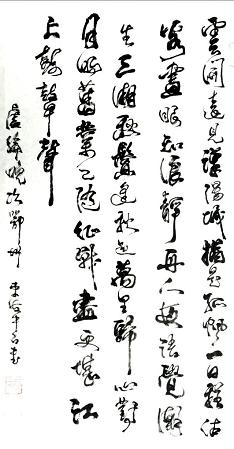 雲開遠見漢陽城猶是孤帆一日程估
客晝眠知浪靜舟人夜語覺潮
生三湘愁鬢逢秋色萬里歸心對
月明舊業已隨征戰盡更堪江
上鼓鼙聲
盧綸晚次鄂州